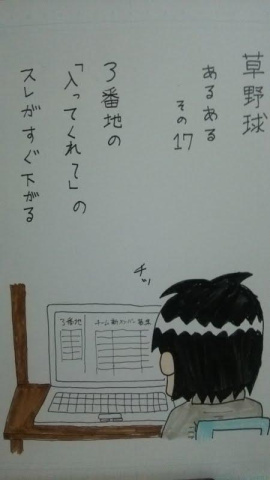 草野球
あるある
その17
3番地の
「入ってくれて」の
スレがすぐ下がる
チッ
3番地
チーム新メンバー募集